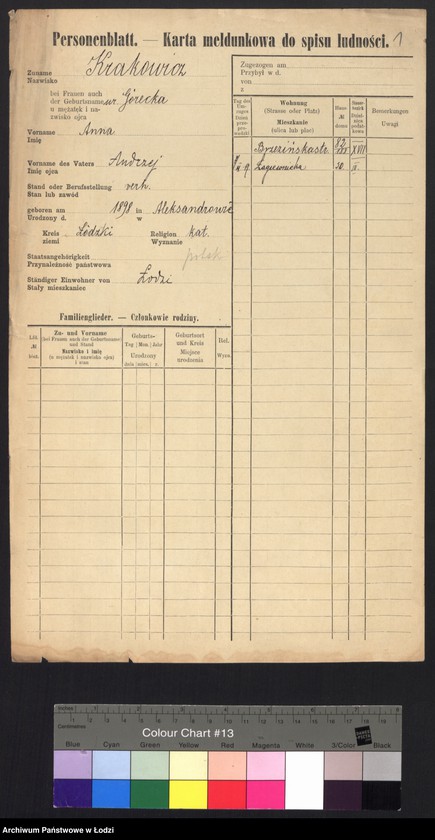 Personenblatt. — Karta meldunkowa do spisu ludności. 1
Zuname Krakowicz
Nazwisko
bei Frauen auch
der Geburtsname ur. Górecka
u mężatek i na-
zwisko ojca
Vorname Anna
Imię
Vorname des Vaters Andrzej
Imię ojca
Stand oder Berufsstellung
Stan lub zawód
geboren am 1898 in Aleksandrowie
Urodzony d. w
Kreis Łódzki Religion kat.
ziemi Wyznanie
Staatsangehörigkeit polsk
Przynależność państwowa
Ständiger Einwohner von Łodzi
Stały mieszkaniec
Familienglieder. — Członkowie rodziny.
Zu- und Vorname
(bei Frauen auch der Geburtsname)
und Stand
Nazwisko i imię
(u mężatek i nazwisko ojca)
i stan
Geburts-
Tag Mon. Jahr
Urodzony
dnia mies. r.
Geburtsort
und Kreis
Miejsce
urodzenia
Rel.
Wyzn.
Zugezogen am
Przybył w d.
von
z
Tag des
Um-
zuges
Dzień
prze-
pro-
wadzki
Wohnung
(Strasse oder Platz)
Mieszkanie
(ulica lub plac)
Haus-
№
domu
Bemerkungen
Uwagi
Brzezińskastr. XVIII
Łagiewnicka 20. II.
Inches
Centimetres
Colour Chart #13
Blue Cyan Green Yellow Red Magenta White 3/Color Black
Archiwum Państwowe w Łodzi